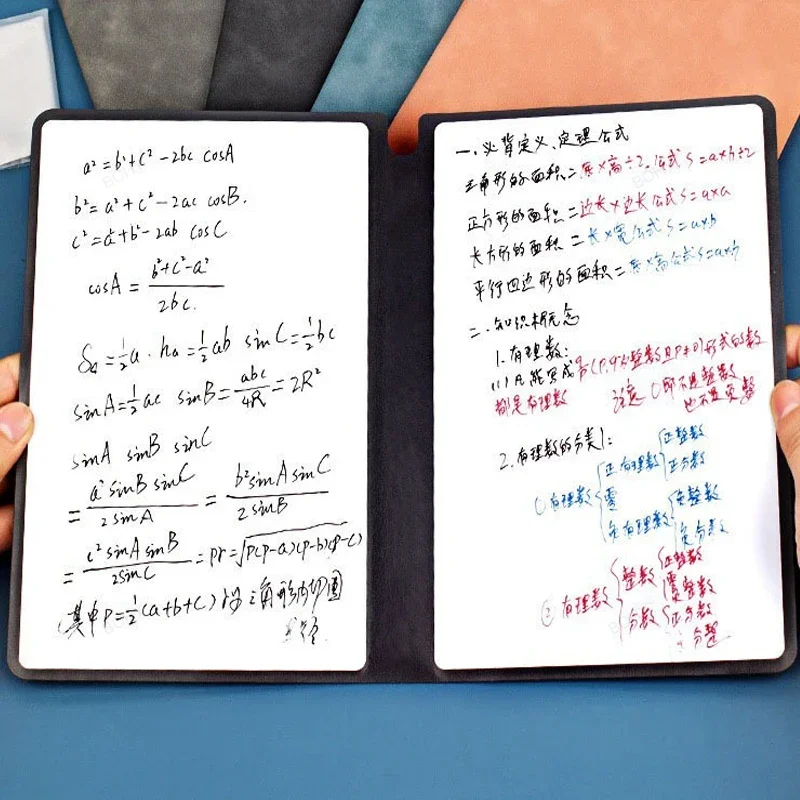 a² = b²+c² - 2bc cosA
b² = a²+c² - 2ac cosB.
c² = a²+b² - 2ab cosC
cosA = (b²+c²-a²)/2bc.
S△ = ½a·ha = ½ab sinC = ½bc
sinA = ½ac sinB = abc/4R = 2R²
sinA sinB sinC
= a²sinB sinC/2sinA = b²sinA sinC/2sinB
= c²sinA sinB/2sinC = pr = √P(P-a)(P-b)(P-c)
(其中P=½(a+b+c) 三角形内切圆
一、必背定义、定理公式
三角形的面积=底×高÷2.公式S=a×h÷2
正方形的面积=边长×边长公式S=a×a
长方形的面积=长×宽公式S=a×b
平行四边形的面积=底×高公式S=a×h
二、知识概念
1.有理数:
(1)凡能写成q/p(P,q为整数且P≠0)形式的数
都是有理数 注意 0即不是整数
也不是负整
2.有理数的分类1:
①有理数
正有理数
正整数
正分数
零
负有理数
负整数
负分数
②有理数
整数
正整数
零
负整数
分数
正分数